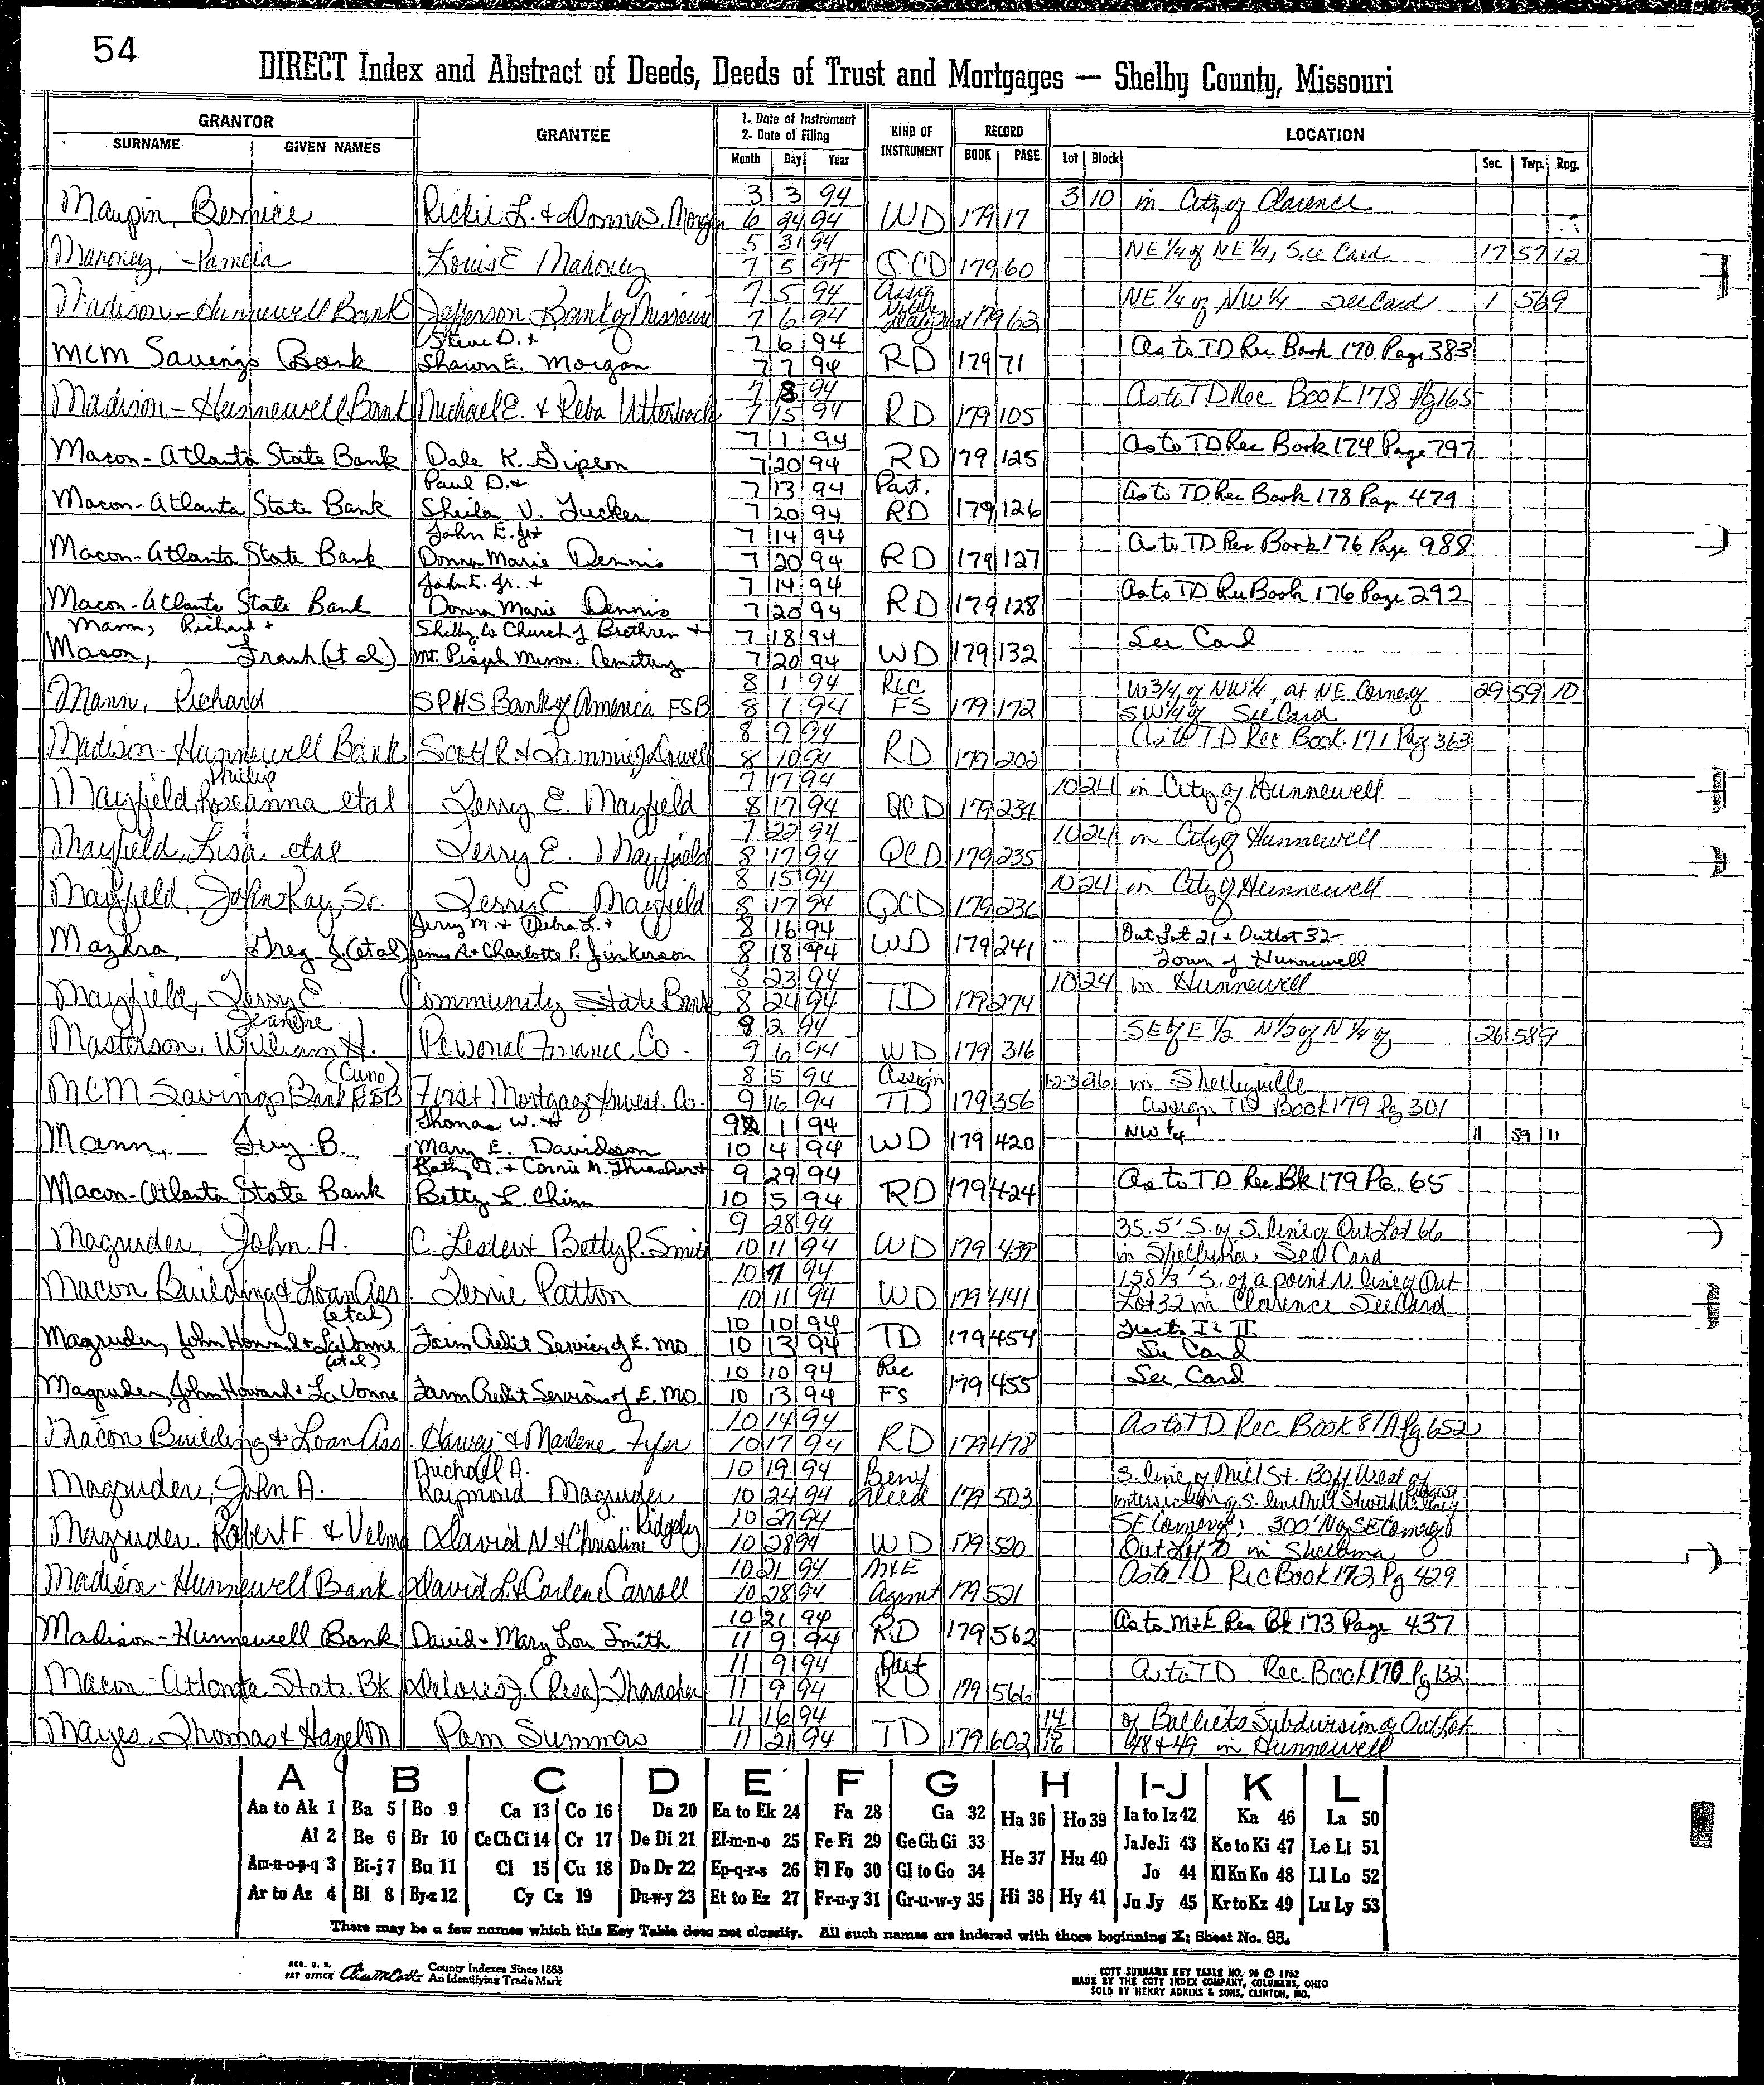 54
DIRECT Index and Abstract of Deeds, Deeds of Trust and Mortgages — Shelby County, Missouri
GRANTOR GRANTEE 1. Date of Instrument 2. Date of Filing KIND OF INSTRUMENT RECORD LOCATION
SURNAME GIVEN NAMES Month Day Year BOOK PAGE Lot Block Sec. Twp. Rng.
3 3 94 3 10 in City of Clarence
Maupin, Bernice Rickie L. & Donna S. Morgan 6 24 94 WD 179 17
5 31 94 NE 1/4 of NE 1/4, See Card 17 57 12
Mahoney, Pamela Louis E Mahoney 7 5 94 QCD 179 60
7 5 94 Assig NE 1/4 of NW 1/4 See Card 1 56 9
Madison-Hunnewell Bank Jefferson Bank of Missouri 7 6 94 179 62
Steve D. + 7 6 94 As to TD Rec Book 170 Page 383
MCM Savings Bank Shawn E. Morgan 7 7 94 RD 179 71
7 8 94 As to TD Rec Book 178 Pg 165
Madison-Hunnewell Bank Michael E. & Reba Utterback 7 15 94 RD 179 105
7 1 94 As to TD Rec Book 174 Page 797
Macon-Atlanta State Bank Dale K. Gipson 7 20 94 RD 179 125
Paul D. + 7 13 94 Part. As to TD Rec Book 178 Page 479
Macon-Atlanta State Bank Sheila V. Tucker 7 20 94 RD 179 126
John E. Jr + 7 14 94 As to TD Rec Book 176 Page 988
Macon-Atlanta State Bank Donna Marie Dennis 7 20 94 RD 179 127
John E. Jr. + 7 14 94 As to TD Rec Book 176 Page 292
Macon-Atlanta State Bank Donna Marie Dennis 7 20 94 RD 179 128
Mann, Richard + Shelby Co Church of Brethren + 7 18 94 See Card
Mason, Frank (et al) Mt. Pisgah Mem. Cemetery 7 20 94 WD 179 132
8 1 94 Rec W 3/4 of NW 1/4, at NE Corner of 29 59 10
Mann, Richard SPHS Bank of America FSB 8 1 94 FS 179 172 SW 1/4 of See Card
8 9 94 As to TD Rec Book 171 Pag 363
Madison-Hunnewell Bank Scott R. & Tammie J Dowell 8 10 94 RD 179 202
Phillip 7 17 94 10 24 in City of Hunnewell
Mayfield, Roseanna etal Terry E. Mayfield 8 17 94 QCD 179 234
7 22 94 10 24 in City of Hunnewell
Mayfield, Lisa etal Terry E. Mayfield 8 17 94 QCD 179 235
8 15 94 10 24 in City of Hunnewell
Mayfield, John Kay, Sr. Terry E Mayfield 8 17 94 QCD 179 236
Jerry M. + Debra L. + 8 16 94 Out Lot 21 & Outlot 32
Greg J. (et al) James A. + Charlotte P. Jinkerson 8 18 94 WD 179 241 Town of Hunnewell
8 23 94 10 24 in Hunnewell
Mayfield, Terry E. Community State Bank 8 24 94 TD 179 274
8 2 94 SE of E 1/2 N 1/2 of N 1/4 of 26 58 9
Masterson, William H. Personal Finance Co. 9 6 94 WD 179 316
(Cuno) 8 5 94 Assign 1-2-3 26 in Shelbyville
MCM Savings Bank FSB First Mortgage Invest. Co. 9 16 94 TD 179 356 Assign TD Book 179 Pg 301
Thomas W. + 9 1 94 NW 1/4 11 59 11
Mann, Guy B. Mary E. Davidson 10 4 94 WD 179 420
Kathy J. + Connie M. Thrasher + 9 29 94 As to TD Rec Bk 179 PG. 65
Macon-Atlanta State Bank Betty L. Chinn 10 5 94 RD 179 424
9 28 94 35.5' S. of S. line of Out Lot 66
Magruder, John A. C. Lester & Betty R. Smith 10 11 94 WD 179 439 in Shelbina See Card
10 7 94 158 1/3' S. of a point N. line of Out
Macon Building & Loan Ass Terrie Patton 10 11 94 WD 179 441 Lot 32 in Clarence See Card
(et al) 10 10 94 Tracts I & II
Magruder, John Howard & LaVonne Farm Credit Services of E. Mo 10 13 94 TD 179 454 See Card
(et al) 10 10 94 Rec See Card
Magruder, John Howard & LaVonne Farm Credit Services of E. Mo. 10 13 94 FS 179 455
10 14 94 As to TD Rec Book 81A Pg 652
Macon Building & Loan Ass Harvey & Marlene Tyler 10 17 94 RD 179 478
Michael A. 10 19 94 Benf S. line of Mill St. 130 ft West of
Magruder, John A. Raymond Magruder 10 24 94 Deed 179 503 intersection of S. line Mill St with
Ridgely 10 27 94 SE Corner of; 300' N of SE Corner of
Magruder, Robert F. & Velma David N & Christine 10 28 94 WD 179 520 Out Lot 70 in Shelbina
10 21 94 M&E As to TD Rec Book 173 Pg 429
Madison-Hunnewell Bank David L. & Carlene Carroll 10 28 94 Agmet 179 521
10 21 94 As to M&E Rec Bk 173 Page 437
Madison-Hunnewell Bank David + Mary Lou Smith 11 9 94 RD 179 562
11 9 94 Part As to TD Rec. Book 170 Pg 132
Macon-Atlanta State Bk Delores J. (Resa) Thrasher 11 9 94 RD 179 566
11 16 94 14 of Balliets Subdivision of Outlot
Mayes, Thomas & Hazel Pam Summers 11 21 94 TD 179 602 15 16 48 & 49 in Hunnewell
A B C D E F G H I-J K L
Aa to Ak 1 Ba 5 Bo 9 Ca 13 Co 16 Da 20 Ea to Ek 24 Fa 28 Ga 32 Ha 36 Ho 39 Ia to Iz 42 Ka 46 La 50
Al 2 Be 6 Br 10 Ce Ch Ci 14 Cr 17 De Di 21 El-m-n-o 25 Fe Fi 29 Ge Gh Gi 33 He 37 Hu 40 Ja Je Ji 43 Ke to Ki 47 Le Li 51
Am-n-o-p-q 3 Bi-j 7 Bu 11 Cl 15 Cu 18 Do Dr 22 Ep-q-r-s 26 Fl Fo 30 Gl to Go 34 Jo 44 Kl Kn Ko 48 Ll Lo 52
Ar to Az 4 Bl 8 By-z 12 Cy Cz 19 Du-w-y 23 Et to Ez 27 Fr-u-y 31 Gr-u-w-y 35 Hi 38 Hy 41 Ju Jy 45 Kr to Kz 49 Lu Ly 53
There may be a few names which this Key Table does not classify. All such names are indexed with those beginning X; Sheet No. 95.
REG. U. S. PAT OFFICE County Indexes Since 1888 An Identifying Trade Mark
COTT SURNAME KEY TABLE NO. 96 © 1962
MADE BY THE COTT INDEX COMPANY, COLUMBUS, OHIO
SOLD BY HENRY ADKINS & SONS, CLINTON, MO.